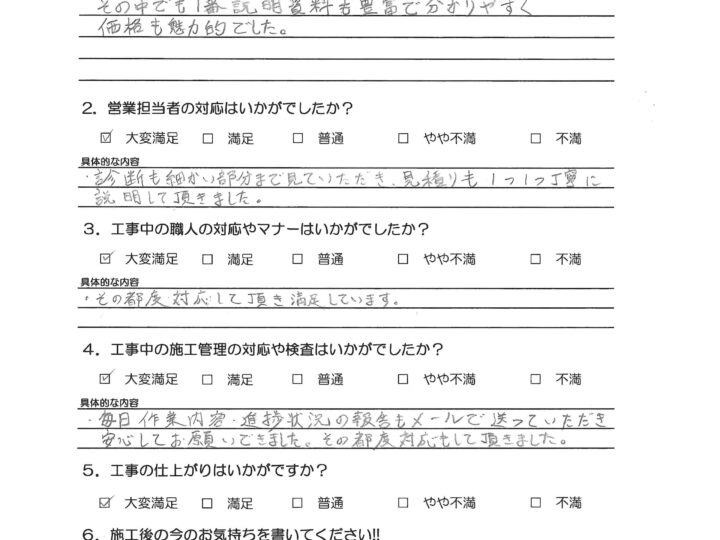 その中でも1番説明資料も豊富で分かりやすく
価格も魅力的でした。
2．営業担当者の対応はいかがでしたか？
☑ 大変満足 □ 満足 □ 普通 □ やや不満 □ 不満
具体的な内容
・診断も細かい部分まで見ていただき、見積りも1つ1つ丁寧に
説明して頂きました。
3．工事中の職人の対応やマナーはいかがでしたか？
☑ 大変満足 □ 満足 □ 普通 □ やや不満 □ 不満
具体的な内容
・その都度対応して頂き満足しています。
4．工事中の施工管理の対応や検査はいかがでしたか？
☑ 大変満足 □ 満足 □ 普通 □ やや不満 □ 不満
具体的な内容
・毎日作業内容・進捗状況の報告もメールで送っていただき
安心してお願いできました。その都度対応もして頂きました。
5．工事の仕上がりはいかがですか？
☑ 大変満足 □ 満足 □ 普通 □ やや不満 □ 不満
6．施工後の今のお気持ちを書いてください!!